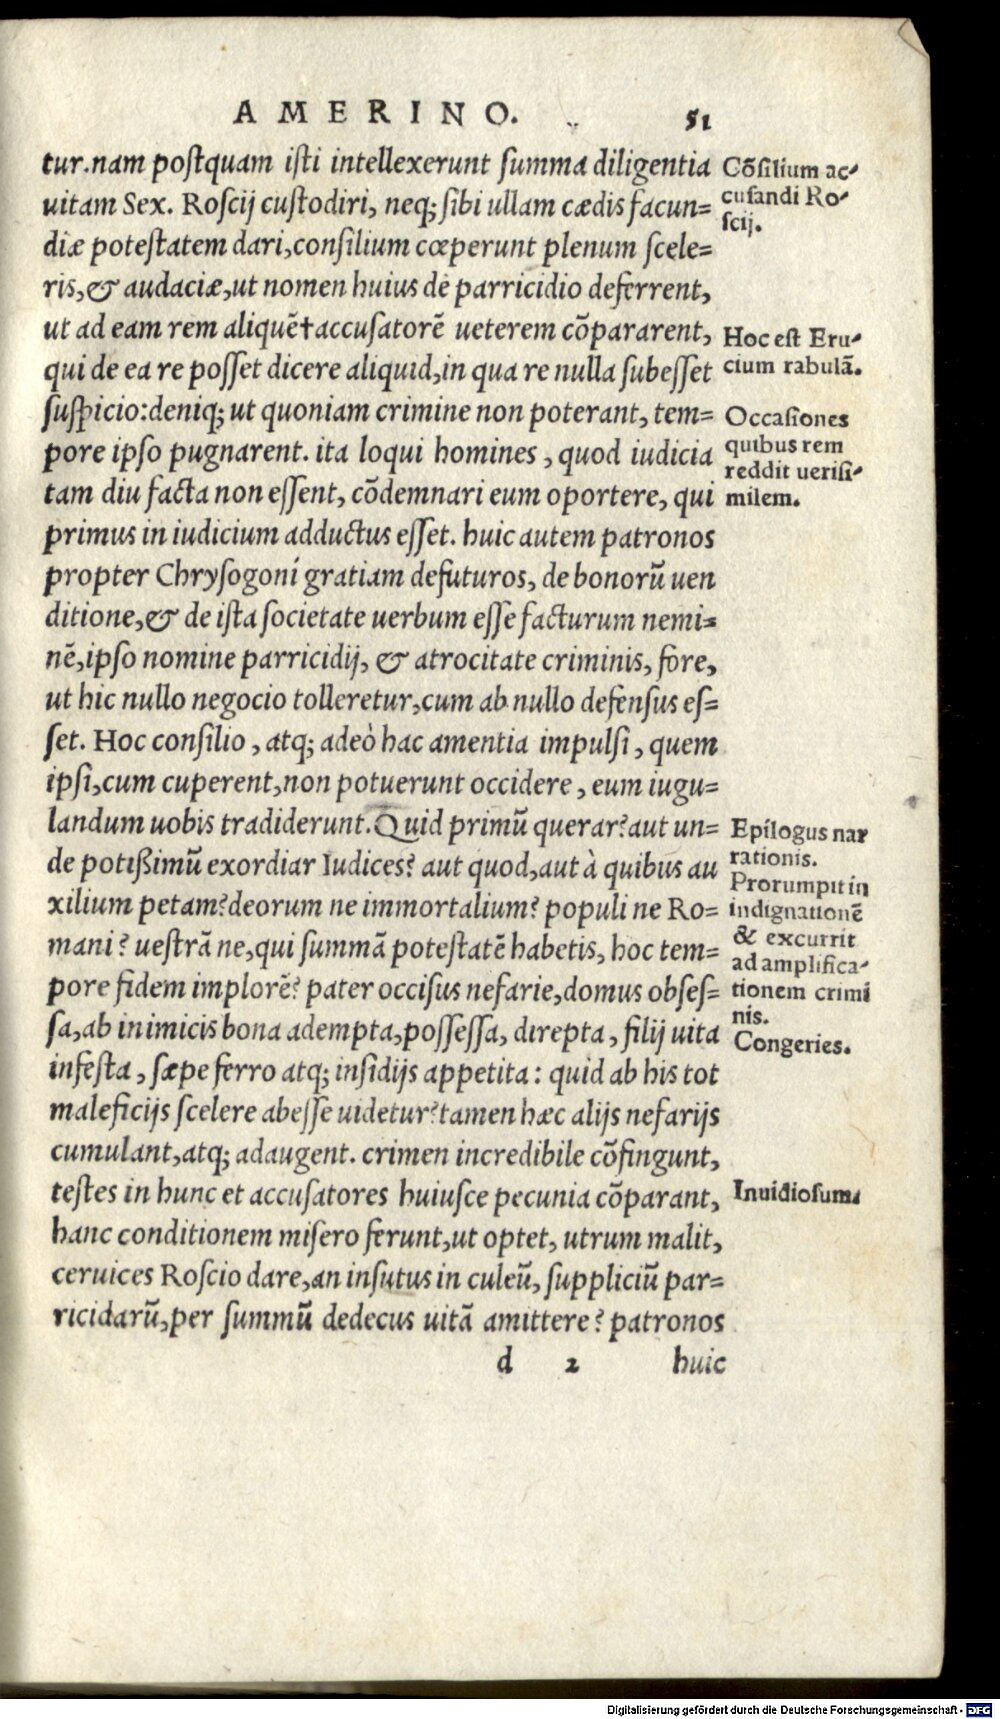 AMERINO. 51
tur.nam postquam isti intellexerunt summa diligentia
uitam Sex. Roscij custodiri, neq; sibi ullam cædis facun=
diæ potestatem dari,consilium cœperunt plenum scele=
ris,& audaciæ,ut nomen huius de parricidio deferrent,
ut ad eam rem aliquē†accusatorē ueterem cōpararent,
qui de ea re posset dicere aliquid,in qua re nulla subesset
suspicio:deniq; ut quoniam crimine non poterant, tem=
pore ipso pugnarent. ita loqui homines, quod iudicia
tam diu facta non essent, cōdemnari eum oportere, qui
primus in iudicium adductus esset. huic autem patronos
propter Chrysogoni gratiam defuturos, de bonorū uen
ditione,& de ista societate uerbum esse facturum nemi=
nē,ipso nomine parricidij, & atrocitate criminis, fore,
ut hic nullo negocio tolleretur,cum ab nullo defensus es=
set. Hoc consilio, atq; adeò hac amentia impulsi, quem
ipsi,cum cuperent,non potuerunt occidere, eum iugu=
landum uobis tradiderunt.Quid primū querar?aut un=
de potißimū exordiar Iudices? aut quod,aut à quibus au
xilium petam?deorum ne immortalium? populi ne Ro=
mani? uestrā ne,qui summā potestatē habetis, hoc tem=
pore fidem implorē? pater occisus nefarie,domus obses=
sa,ab inimicis bona adempta,possessa, direpta, filij uita
infesta, sæpe ferro atq; insidijs appetita: quid ab his tot
maleficijs scelere abesse uidetur?tamen hæc alijs nefarijs
cumulant,atq; adaugent. crimen incredibile cōfingunt,
testes in hunc et accusatores huiusce pecunia cōparant,
hanc conditionem misero ferunt,ut optet, utrum malit,
ceruices Roscio dare,an insutus in culeū, suppliciū par=
ricidarū,per summū dedecus uitā amittere? patronos
d 2 huic
Cōsilium ac-
cusandi Ro-
scij.
Hoc est Eru-
cium rabulā.
Occasiones
quibus rem
reddit uerisi-
milem.
Epilogus nar
rationis.
Prorumpit in
indignationē
& excurrit
ad amplifica-
tionem crimi
nis.
Congeries.
Inuidiosum.
Digitalisierung gefördert durch die Deutsche Forschungsgemeinschaft - DFG